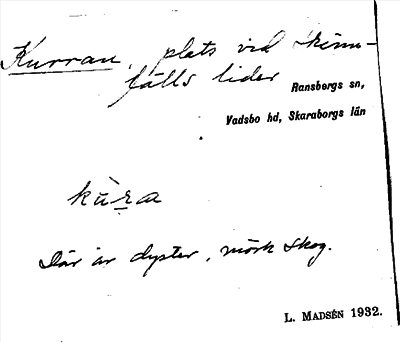 Kurran, plats vid Skinn-
fälls lider
Ransbergs sn,
Vadsbo hd, Skaraborgs län
Där är dyster, mörk skog.
L. MADSÉN 1932.